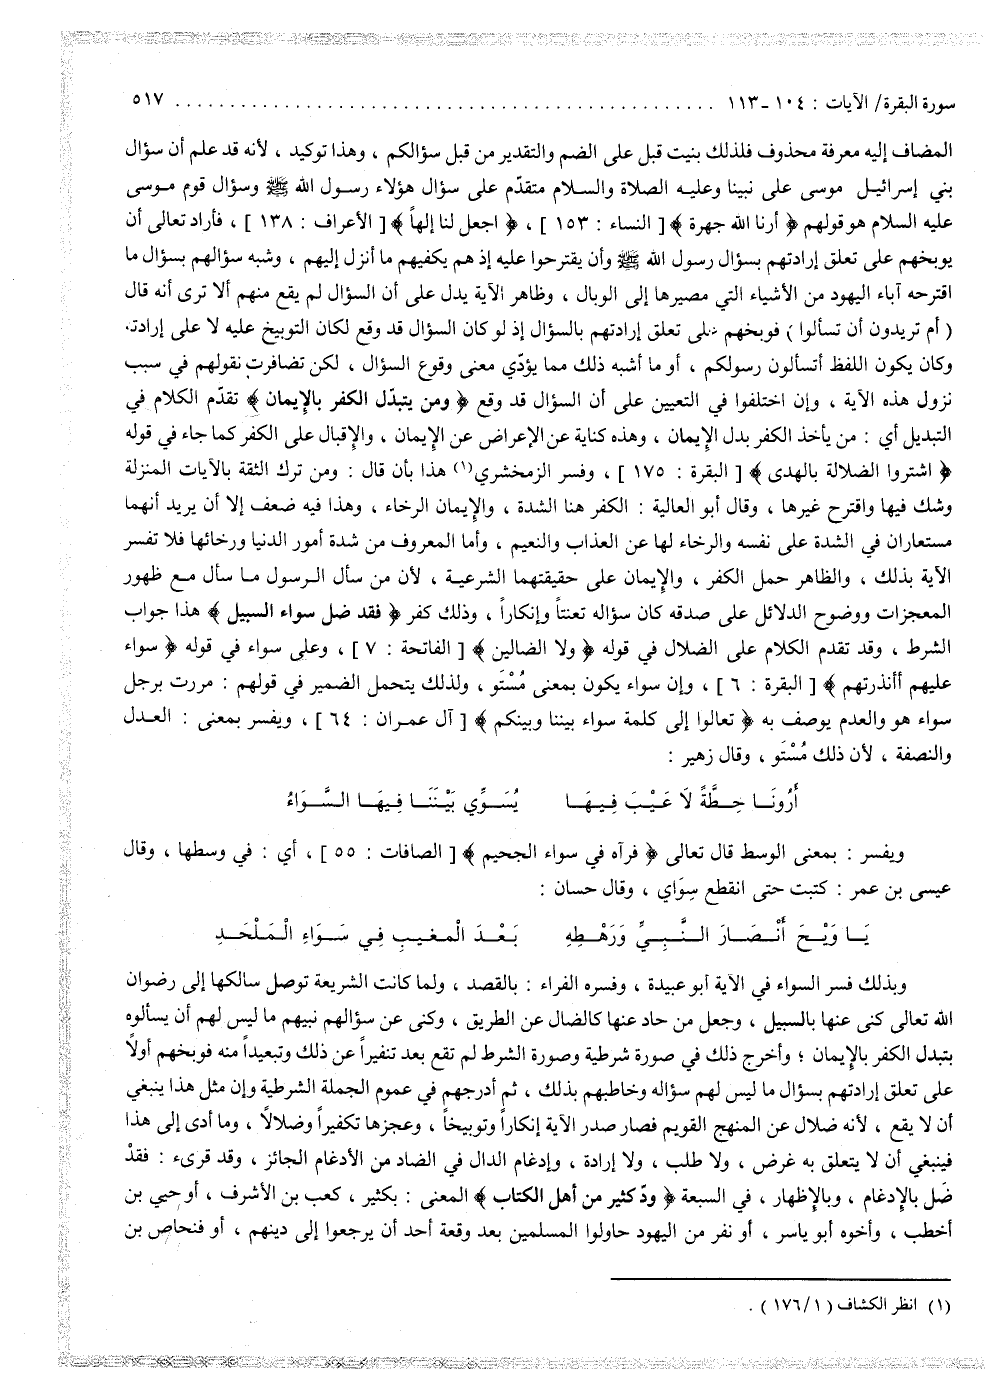 سورة البقرة/ الآيات : ١٠٤ -١١٣ ........................................................ ٥١٧
المضاف إليه معرفة محذوف فلذلك بنيت قبل على الضم والتقدير من قبل سؤالكم ، وهذا توكيد ، لأنه قد علم أن سؤال
بني إسرائيل موسى على نبينا وعليه الصلاة والسلام متقدّم على سؤال هؤلاء رسول الله ﷺ وسؤال قوم موسى
عليه السلام هو قولهم ﴿ أرنا الله جهرة ﴾[ النساء : ١٥٣ ] ، ﴿ اجعل لنا إلهاً ﴾[ الأعراف : ١٣٨ ] ، فأراد تعالى أن
يوبخهم على تعلق إرادتهم بسؤال رسول الله ﷺ وأن يقترحوا عليه إذ هم يكفيهم ما أنزل إليهم ، وشبه سؤالهم بسؤال ما
اقترحه آباء اليهود من الأشياء التي مصيرها إلى الوبال ، وظاهر الآية يدل على أن السؤال لم يقع منهم ألا ترى أنه قال
( أم تريدون أن تسألوا ) فوبخهم على تعلق إرادتهم بالسؤال إذ لو كان السؤال قد وقع لكان التوبيخ عليه لا على إرادته
وكان يكون اللفظ أتسألون رسولكم ، أو ما أشبه ذلك مما يؤدّي معنى وقوع السؤال ، لكن تضافرت نقولهم في سبب
نزول هذه الآية ، وإن اختلفوا في التعيين على أن السؤال قد وقع ﴿ ومن يتبدّل الكفر بالإِيمان ﴾ تقدّم الكلام في
التبديل أي : من يأخذ الكفر بدل الإِيمان ، وهذه كناية عن الإعراض عن الإِيمان ، والإِقبال على الكفر كما جاء في قوله
﴿ اشتروا الضلالة بالهدى ﴾ [ البقرة : ١٧٥ ] ، وفسر الزمخشري(١) هذا بأن قال : ومن ترك الثقة بالآيات المنزلة
وشك فيها واقترح غيرها ، وقال أبو العالية : الكفر هنا الشدة ، والإِيمان الرخاء ، وهذا فيه ضعف إلا أن يريد أنهما
مستعاران في الشدة على نفسه والرخاء لها عن العذاب والنعيم ، وأما المعروف من شدة أمور الدنيا ورخائها فلا تفسر
الآية بذلك ، والظاهر حمل الكفر ، والإِيمان على حقيقتهما الشرعية ، لأن من سأل الرسول ما سأل مع ظهور
المعجزات ووضوح الدلائل على صدقه كان سؤاله تعنتاً وإنكاراً ، وذلك كفر ﴿ فقد ضل سواء السبيل ﴾ هذا جواب
الشرط ، وقد تقدم الكلام على الضلال في قوله ﴿ ولا الضالين ﴾ [ الفاتحة : ٧ ] ، وعلى سواء في قوله ﴿ سواء
عليهم أأنذرتهم ﴾ [ البقرة : ٦ ] ، وإن سواء يكون بمعنى مُسْتَو ، ولذلك يتحمل الضمير في قولهم : مررت برجل
سواء هو والعدم يوصف به ﴿ تعالوا إلى كلمة سواء بيننا وبينكم ﴾ [ آل عمران : ٦٤ ] ، ويفسر بمعنى : العدل
والنصفة ، لأن ذلك مُسْتَو ، وقال زهير :
أَرُونَـا خِطَّةً لَا عَيْبَ فِيهَـا يُسَـوِّي بَيْنَنَـا فِيهَـا السَّـوَاءُ
ويفسر : بمعنى الوسط قال تعالى ﴿ فرآه في سواء الجحيم ﴾ [ الصافات : ٥٥ ] ، أي : في وسطها ، وقال
عيسى بن عمر : كتبت حتى انقطع سِوَاي ، وقال حسان :
يَـا وَيْحَ أَنْصَارَ النَّبِيِّ وَرَهْطِهِ بَعْدَ الْمغيبِ فِي سَوَاءِ الْمَلْحَدِ
وبذلك فسر السواء في الآية أبو عبيدة ، وفسره الفراء : بالقصد ، ولما كانت الشريعة توصل سالكها إلى رضوان
الله تعالى كنى عنها بالسبيل ، وجعل من حاد عنها كالضال عن الطريق ، وكنى عن سؤالهم نبيهم ما ليس لهم أن يسألوه
بتبدل الكفر بالإِيمان ؛ وأخرج ذلك في صورة شرطية وصورة الشرط لم تقع بعد تنفيراً عن ذلك وتبعيداً منه فوبخهم أولاً
على تعلق إرادتهم بسؤال ما ليس لهم سؤاله وخاطبهم بذلك ، ثم أدرجهم في عموم الجملة الشرطية وإن مثل هذا ينبغي
أن لا يقع ، لأنه ضلال عن المنهج القويم فصار صدر الآية إنكاراً وتوبيخاً ، وعجزها تكفيراً وضلالاً ، وما أدى إلى هذا
فينبغي أن لا يتعلق به غرض ، ولا طلب ، ولا إرادة ، وإدغام الدال في الضاد من الأدغام الجائز ، وقد قرىء : فقدْ
ضَل بالإِدغام ، وبالإِظهار ، في السبعة ﴿ ودّ كثير من أهل الكتاب ﴾ المعنى : بكثير ، كعب بن الأشرف ، أو حيي بن
أخطب ، وأخوه أبو ياسر ، أو نفر من اليهود حاولوا المسلمين بعد وقعة أحد أن يرجعوا إلى دينهم ، أو فنحاص بن
(١) انظر الكشاف ( ١٧٦/١ ) .